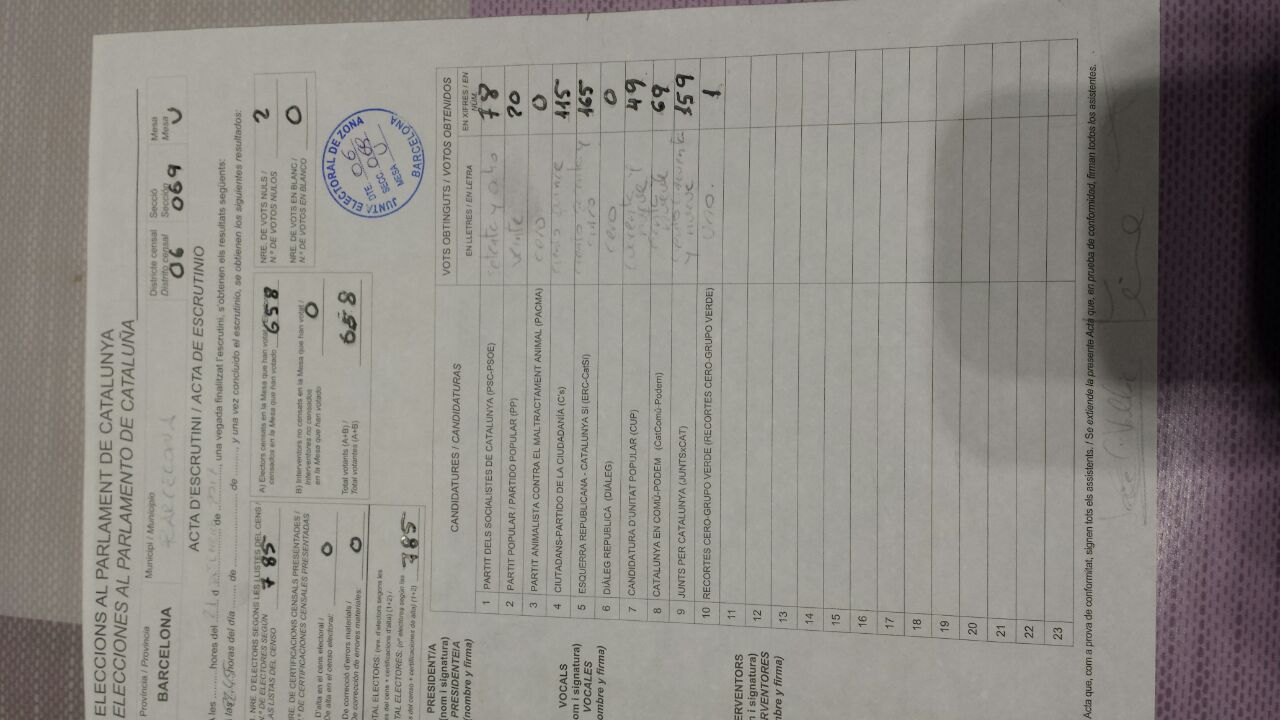 ELECCIONS AL PARLAMENT DE CATALUNYA
ELECCIONES AL PARLAMENTO DE CATALUÑA
Província / Provincia
BARCELONA
Municipi / Municipio
BARCELONA
Districte censal
Distrito censal
06
Secció
Sección
069
Mesa
Mesa
U
ACTA D'ESCRUTINI / ACTA DE ESCRUTINIO
A les hores del d de , una vegada finalitzat l'escrutini, s'obtenen els resultats següents:
A las horas del día de de , y una vez concluido el escrutinio, se obtienen los siguientes resultados:
NRE. D'ELECTORS SEGONS LES LLISTES DEL CENS /
N.º DE ELECTORES SEGÚN
LAS LISTAS DEL CENSO
785
NRE. DE CERTIFICACIONS CENSALS PRESENTADES /
N.º DE CERTIFICACIONES CENSALES PRESENTADAS
D'alta en el cens electoral /
De alta en el censo electoral:
0
De correcció d'errors materials /
De corrección de errores materiales:
0
TAL ELECTORS: (nre. d'electors segons les
es del cens + certificacions d'alta) (1+2) /
TAL ELECTORES: (nº electores según las
s del censo + certificaciones de alta) (1+2)
785
A) Electors censats en la Mesa que han votat /
censados en la Mesa que han votado
658
B) Interventors no censats en la Mesa que han votat /
Interventores no censados
en la Mesa que han votado
0
Total votants (A+B) /
Total votantes (A+B)
658
NRE. DE VOTS NULS /
N.º DE VOTOS NULOS
2
NRE. DE VOTS EN BLANC /
N.º DE VOTOS EN BLANCO
0
JUNTA ELECTORAL DE ZONA
DTE. 06
SECC. 069
MESA U
BARCELONA
CANDIDATURES / CANDIDATURAS
VOTS OBTINGUTS / VOTOS OBTENIDOS
EN LLETRES / EN LETRA
EN XIFRES / EN NÚM.
1 PARTIT DELS SOCIALISTES DE CATALUNYA (PSC-PSOE) setenta y ocho 78
2 PARTIT POPULAR / PARTIDO POPULAR (PP) veinte 20
3 PARTIT ANIMALISTA CONTRA EL MALTRACTAMENT ANIMAL (PACMA) cero 0
4 CIUTADANS-PARTIDO DE LA CIUDADANÍA (C's) ciento quince 115
5 ESQUERRA REPUBLICANA - CATALUNYA SÍ (ERC-CatSí) 165
6 DIÀLEG REPUBLICÀ (DIÀLEG) cero 0
7 CANDIDATURA D'UNITAT POPULAR (CUP) cuarenta y nueve 49
8 CATALUNYA EN COMÚ-PODEM (CatComú-Podem) 69
9 JUNTS PER CATALUNYA (JUNTSxCAT) 159
10 RECORTES CERO-GRUPO VERDE (RECORTES CERO-GRUPO VERDE) uno. 1
11
12
13
14
15
16
17
18
19
20
21
22
23
PRESIDENTIA
(nom i signatura)
PRESIDENTE/A
(nombre y firma)
VOCALS
(nom i signatura)
VOCALES
(nombre y firma)
ERVENTORS
m i signatura)
RVENTORES
mbre y firma)
Acta que, com a prova de conformitat, signen tots els assistents. / Se extiende la presente Acta que, en prueba de conformidad, firman todos los asistentes.